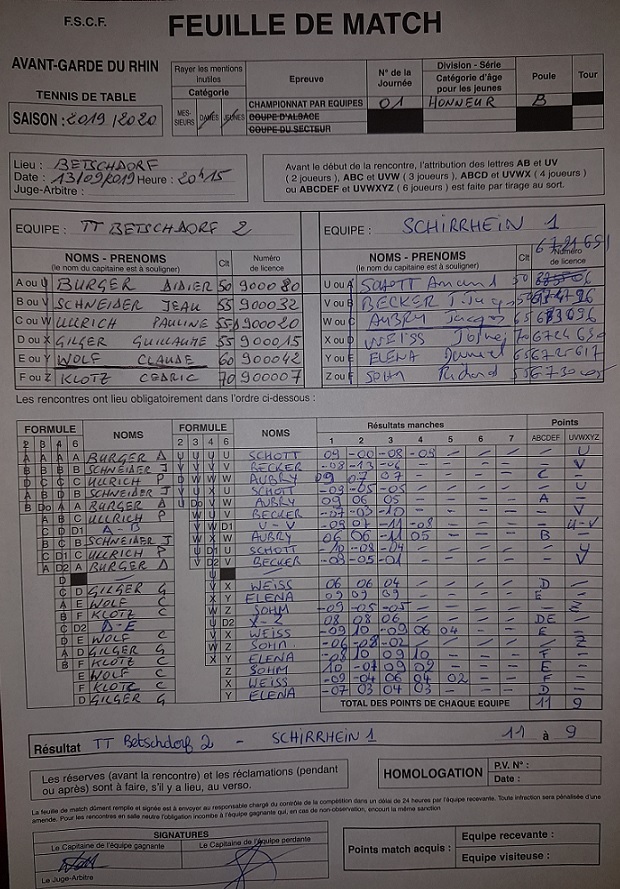 F.S.C.F.
FEUILLE DE MATCH
AVANT-GARDE DU RHIN
TENNIS DE TABLE
SAISON : 2019 / 2020
Rayer les mentions inutiles
Catégorie
MES-SIEURS DAMES JEUNES
Epreuve
CHAMPIONNAT PAR EQUIPES
COUPE D'ALSACE
COUPE DU SECTEUR
N° de la Journée
01
Division - Série
Catégorie d'âge pour les jeunes
HONNEUR
Poule
B
Tour
Lieu : BETSCHDORF
Date : 13/09/2019 Heure : 20h15
Juge-Arbitre :
Avant le début de la rencontre, l'attribution des lettres AB et UV
( 2 joueurs ), ABC et UVW ( 3 joueurs ), ABCD et UVWX ( 4 joueurs )
ou ABCDEF et UVWXYZ ( 6 joueurs ) est faite par tirage au sort.
EQUIPE : TT BETSCHDORF 2
NOMS - PRENOMS Clt Numéro de licence
(le nom du capitaine est à souligner)
A ou U BURGER DIDIER 50 900080
B ou V SCHNEIDER JEAN 55 900032
C ou W ULLRICH PAULINE 55 900020
D ou X GILGER GUILLAUME 55 900015
E ou Y WOLF CLAUDE 60 900042
F ou Z KLOTZ CEDRIC 70 900007
EQUIPE : SCHIRRHEIN 1
NOMS - PRENOMS Clt Numéro de licence
(le nom du capitaine est à souligner)
U ou A SCHOTT Armand 50
V ou B BECKER
W ou C AUBRY Jacques 65
X ou D WEISS 70
Y ou E ELENA 55
Z ou F SOHM Richard 55
Les rencontres ont lieu obligatoirement dans l'ordre ci-dessous :
FORMULE NOMS FORMULE NOMS Résultats manches Points
2 3 4 6 2 3 4 6 1 2 3 4 5 6 7 ABCDEF UVWXYZ
BURGER D SCHOTT 09 -00 -08 -05 U
SCHNEIDER J BECKER -08 -13 -06 V
ULLRICH P AUBRY 09 07 07 C
SCHNEIDER J SCHOTT -09 -05 -05 U
BURGER D AUBRY 09 06 05 A
ULLRICH P BECKER -07 -03 -10 V
A - B U - V -09 07 -11 -08 U-V
SCHNEIDER J AUBRY 06 06 -11 05 B
ULLRICH P SCHOTT -10 -08 -04 U
BURGER D BECKER -09 -05 -01 V
GILGER G WEISS 06 06 04 D
WOLF C ELENA 09 09 09 E
KLOTZ C SOHM -09 -05 -05 Z
D - E X - Z 08 08 06 DE
WOLF C WEISS -09 10 -09 06 04 E
GILGER G SOHM -06 -08 -02 Z
KLOTZ C ELENA -08 10 09 10 F
WOLF C SOHM 10 -07 09 09 E
KLOTZ C WEISS -09 -04 06 04 02 F
GILGER G ELENA -07 03 04 03 D
TOTAL DES POINTS DE CHAQUE EQUIPE 11 9
Résultat TT Betschdorf 2 - SCHIRRHEIN 1 11 à 9
Les réserves (avant la rencontre) et les réclamations (pendant
ou après) sont à faire, s'il y a lieu, au verso.
HOMOLOGATION
P.V. N° :
Date :
La feuille de match dûment remplie et signée est à envoyer au responsable chargé du contrôle de la compétition dans un délai de 24 heures par l'équipe recevante. Toute infraction sera pénalisée d'une
amende. Pour les rencontres en salle neutre l'obligation incombe à l'équipe gagnante qui, en cas de non-observation, encourt la même sanction
SIGNATURES
Le Capitaine de l'équipe gagnante
Le Capitaine de l'équipe perdante
Le Juge-Arbitre
Points match acquis :
Equipe recevante :
Equipe visiteuse :